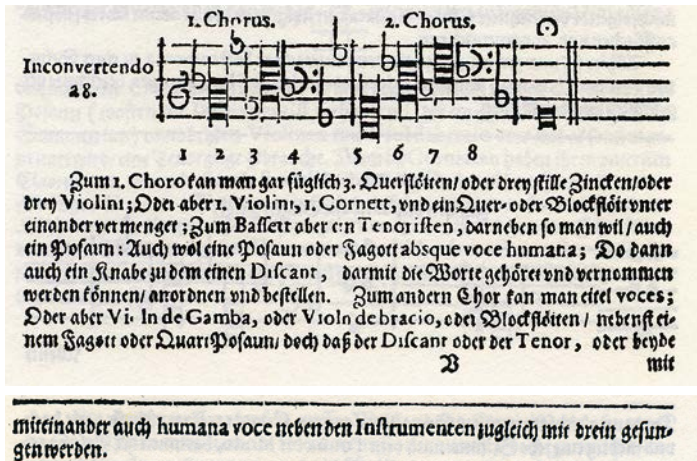 1. Chorus. 2. Chorus.
Inconvertendo
28.
2 3 4 5 6 7 8
Zum 1. Choro kan man gar füglich 3. Querflöiten/ oder drey stille Zincken/oder
drey Violini; Oder aber 1. Violini, 1. Cornett, vnd ein Quer- oder Blockflöit vnter
einander vermenget; Zum Bassett aber ein Tenoristen, darneben so man wil/ auch
ein Posaun: Auch wol eine Posaun oder Fagott absque voce humana; Do dann
auch ein Knabe zu dem einen Discant, darmit die Worte gehöret vnd vernommen
werden können/ anordnen vnd bestellen. Zum andern Chor kan man eitel voces;
Oder aber Vi. In de Gamba, oder Violn de bracio, oder Blockflöiten / nebenst ei-
nem Fagott oder QuartPosaun/ doch daß der Discant oder der Tenor, oder beyde
V mit
miteinander auch humana voce neben den Instrumenten zugleich mit drein gesun-
gen werden.